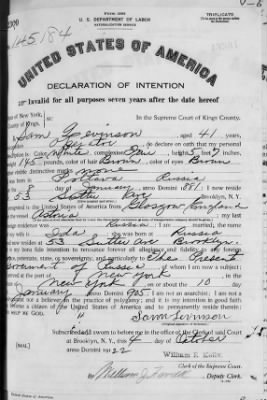 Form 2202
U. S. DEPARTMENT OF LABOR
NATURALIZATION SERVICE
TRIPLICATE
145,184
UNITED STATES OF AMERICA
DECLARATION OF INTENTION
Invalid for all purposes seven years after the date hereof
of New York,
County of Kings,
In the Supreme Court of Kings County.
Sam Levinson, aged 41 years,
occupation, do declare on oath that my personal
description is: Color White, complexion Fair, height 5 feet 7 inches,
145 pounds, color of hair Brown, color of eyes Brown
visible distinctive marks none
Poltava Russia
8 day of January, anno Domini 1881; I now reside
53 Sutter Ave Brooklyn, N.Y.
Glasgow England
Astoria; my last
foreign residence was Russia; I am married;
Ida; was born at Russia
resides at 53 Sutter Ave Brooklyn.
bona fide intention to renounce forever all allegiance and fidelity to any foreign
potentate, state, or sovereignty, and particularly to The Present
Government of Russia, of whom I am now a subject;
at the port of New York, in the
New York, on or about the 10 day
January, anno Domini 1905; I am not an anarchist; I am not a
polygamist nor a believer in the practice of polygamy; and it is my intention in good faith
to become a citizen of the United States of America and to permanently reside therein:
SO HELP ME GOD.
Sam Levinson
Subscribed and sworn to before me in the office of the Clerk of said Court
at Brooklyn, N.Y., this 4 day of October
anno Domini 1922
[SEAL]
William F. Kelly
Clerk of the Supreme Court.
By William J. Farrell, Deputy Clerk.